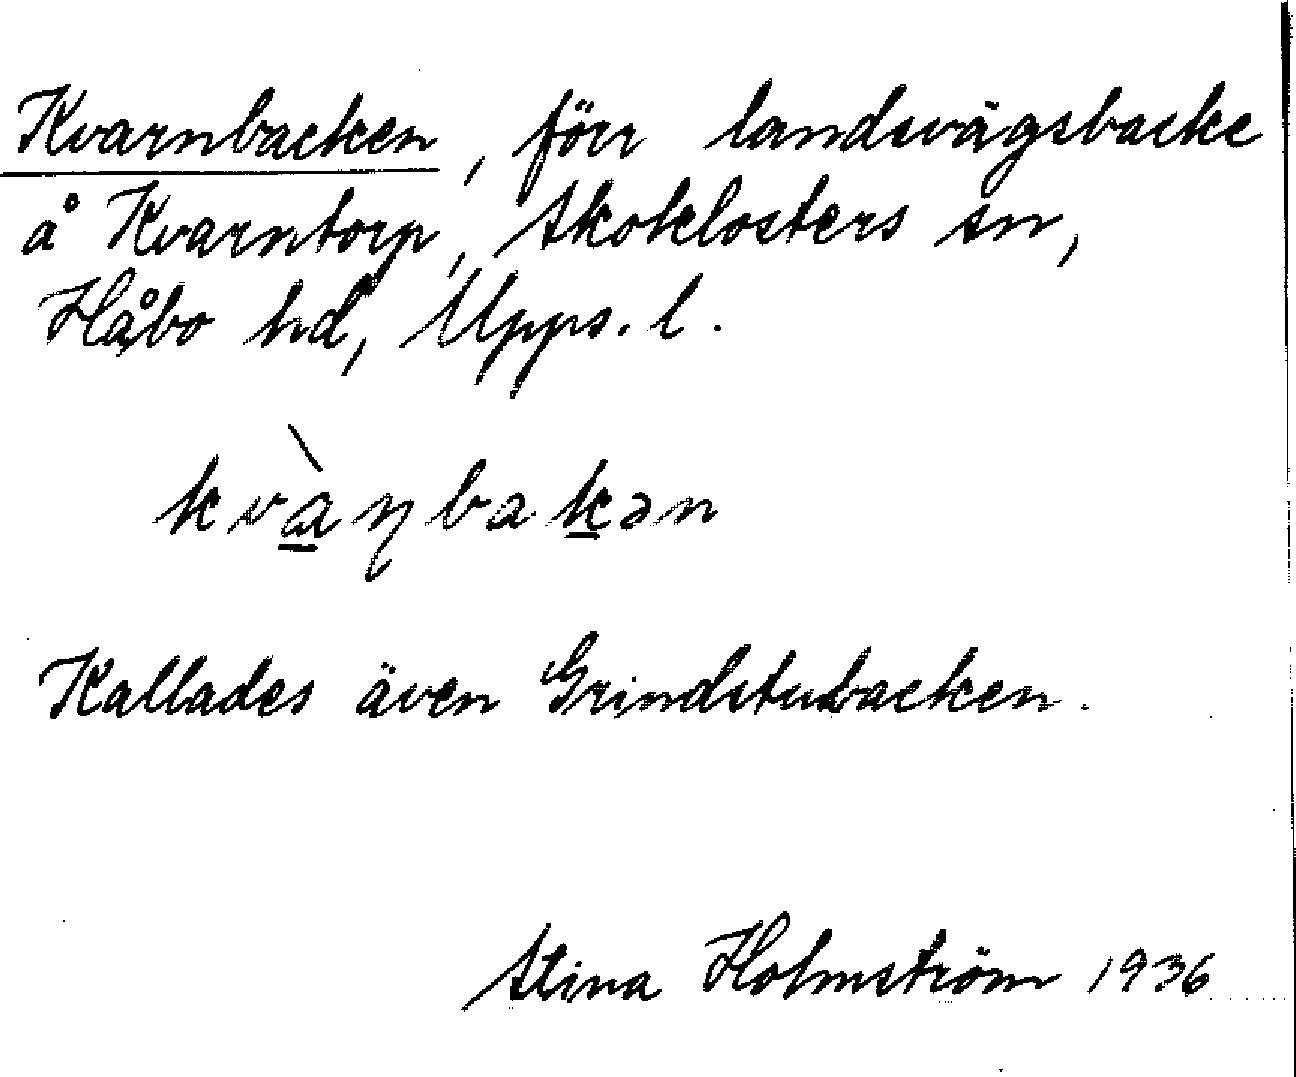 Kvarnbacken, förr landsvägsbacke
å Kvarntorp, Skoklosters sn,
Håbo hd, Upps. l.
kvàɳbakən
Kallades även Grindstubacken.
Stina Holmström 1936